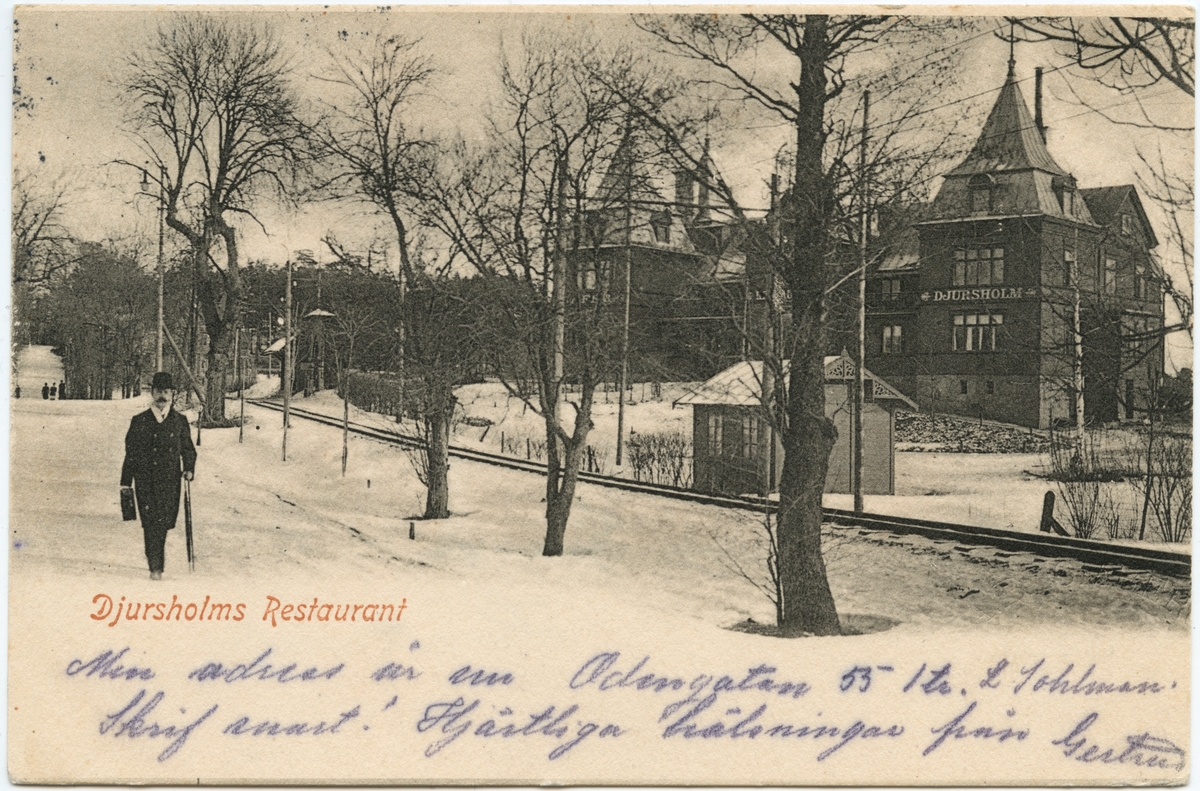 DJURSHOLM
Djursholms Restaurant
Min adress är nu Odengatan 55 1 tr. Sohlman.
Skrif snart! Hjärtliga hälsningar från Gertrud